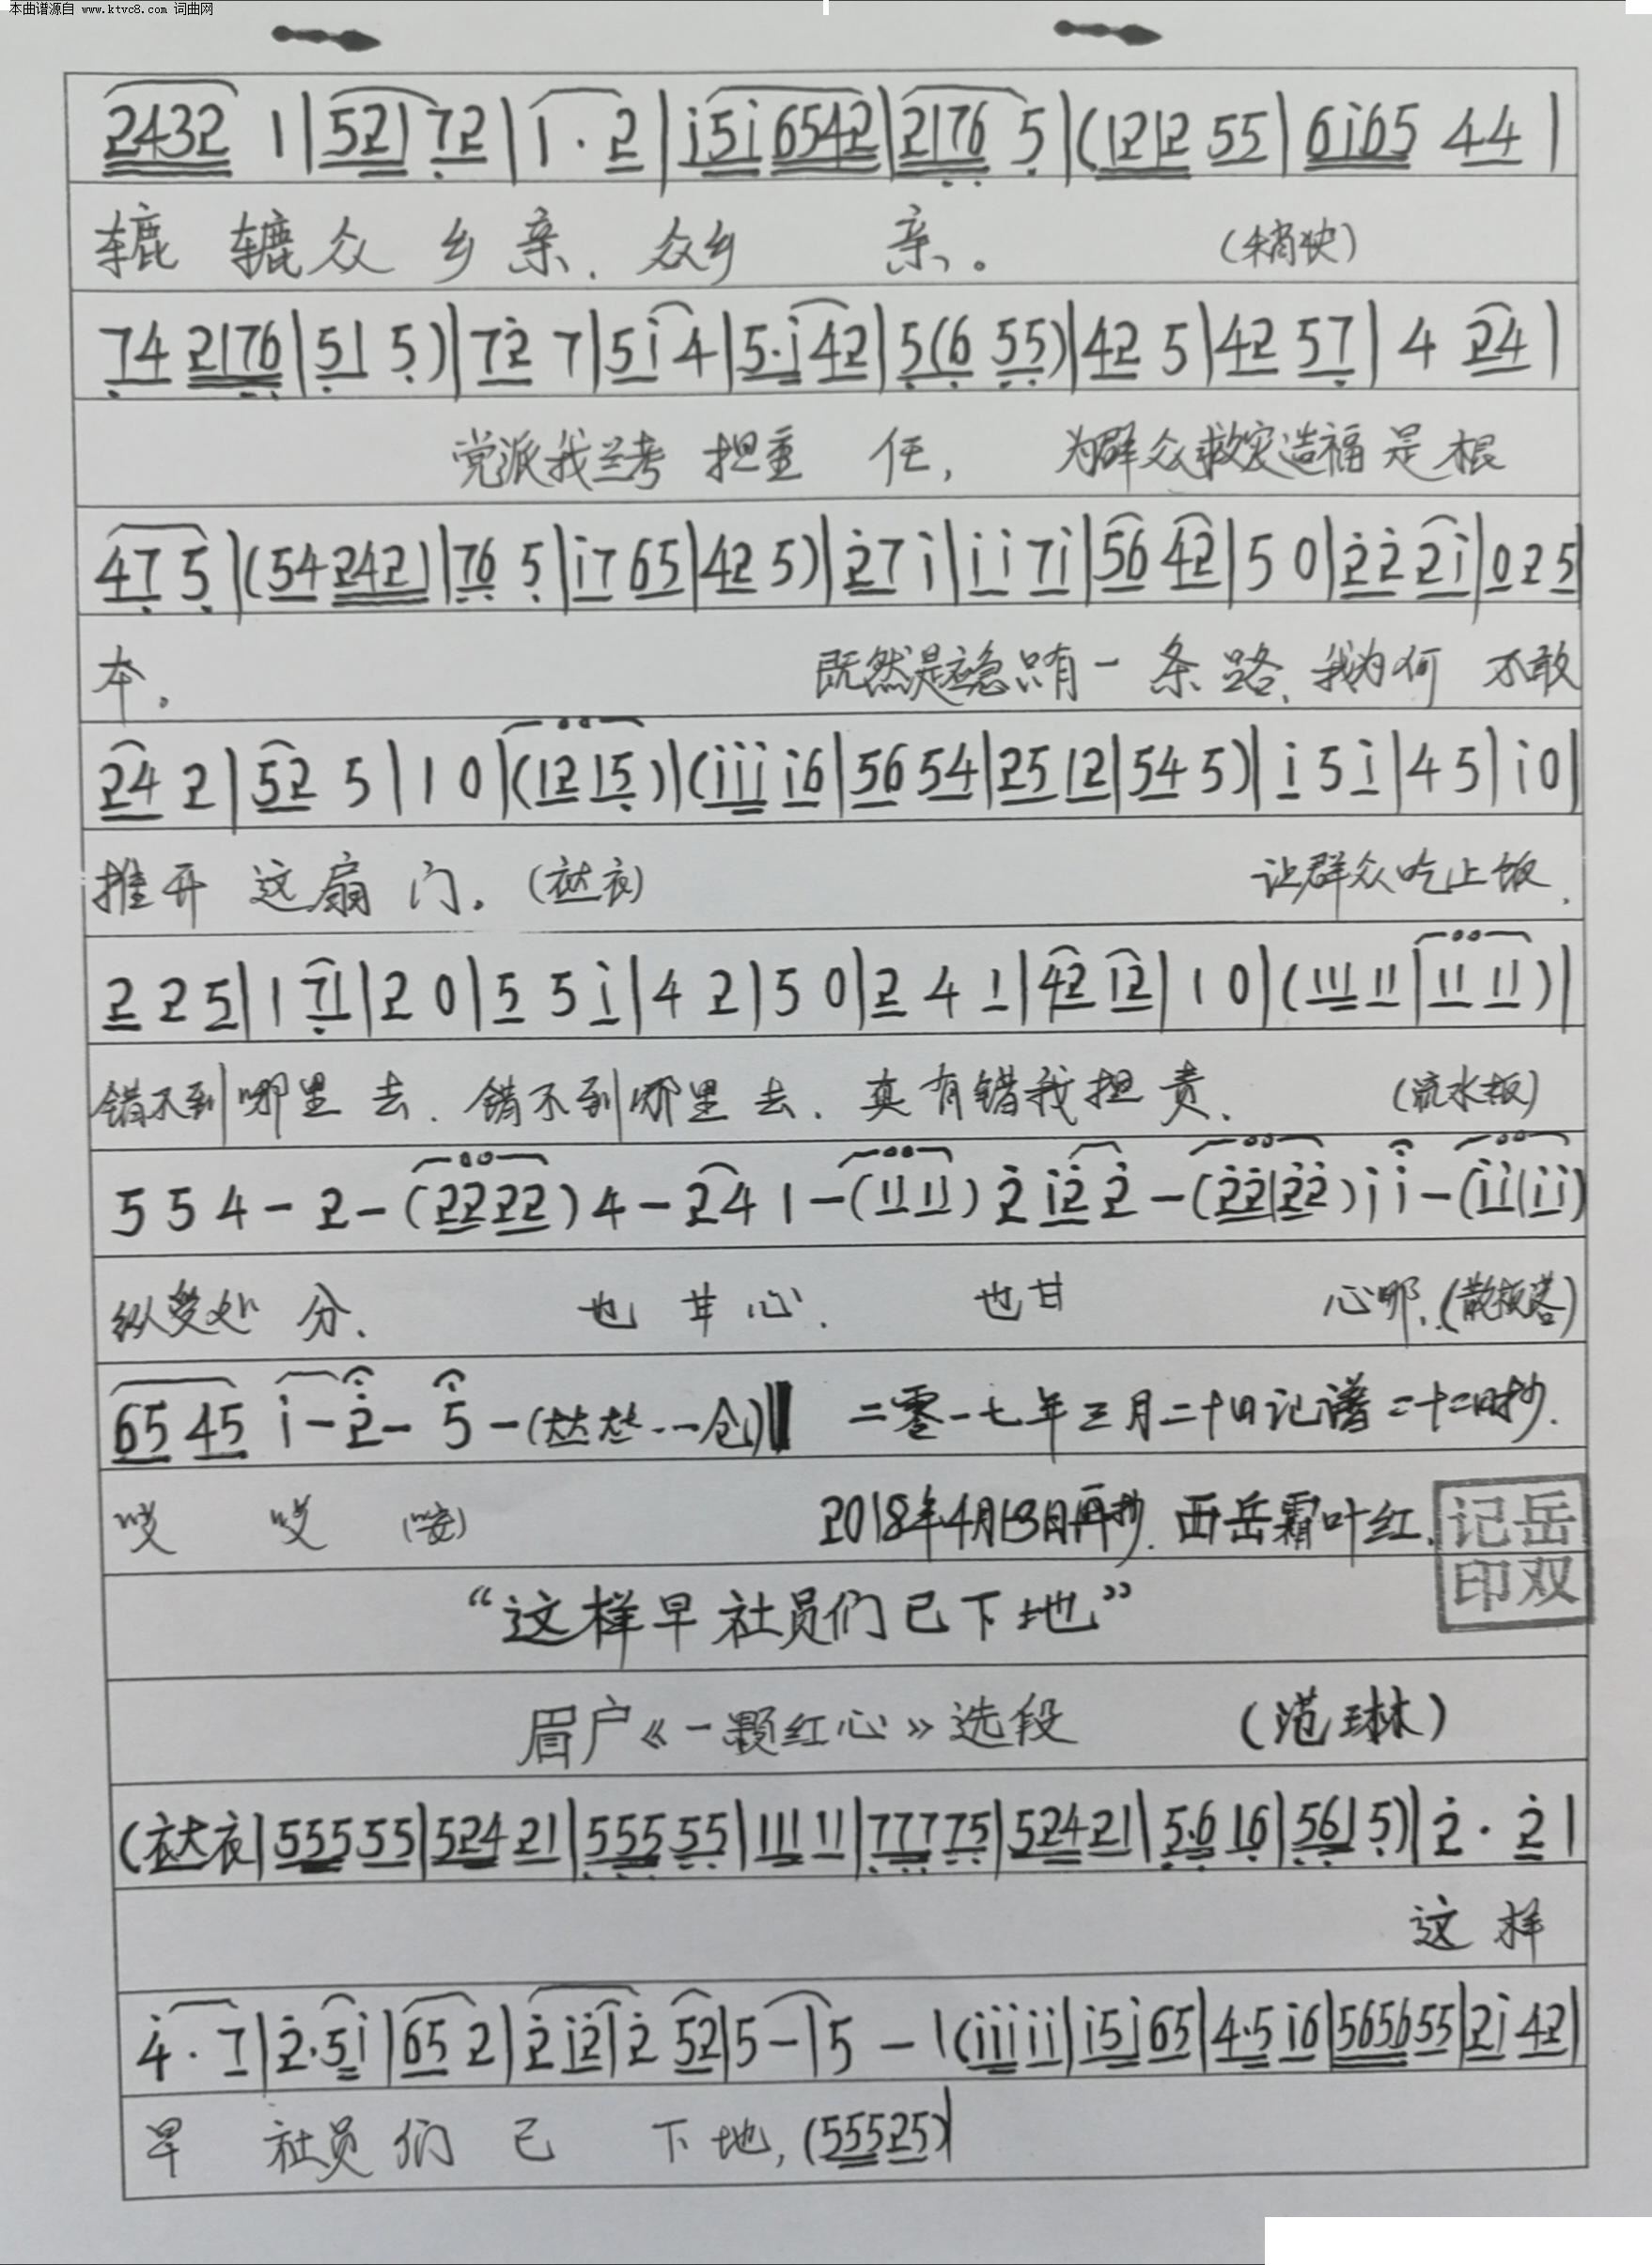 本曲谱源自 www.ktvc8.com 词曲网
2432 1|521 72|i·2|i5i 6542|2176 5|(1212 55|6i65 44|
辘 辘众 乡 亲、众乡 亲、。(稍快)
74 2176|51 5)|72 7|5i 4|5·i 42|5(6 55)|42 5|42 57|4 24|
党派我兰考 担重 任, 为群众救灾造福是根
475|(54 2421|76 5|i7 65|42 5)|27 i|ii 7i|56 42|5 0|22 2i|0 2 5
本。 既然是应急只有一条路、我为何 不敢
24 2|52 5|1 0|(12 15)|(iii i6|56 54|25 12|54 5)|i 5 i|4 5|i 0|
推开 这扇 门。(衣大衣) 让群众吃上饭、
2 2 5|1 71|2 0|5 5 i|4 2|5 0|2 4 1|42 12|1 0|(111 11|11 11)|
错不到哪里 去、错不到哪里 去、真有错我担 责、(流水板)
5 5 4-2-(22 22)4-24 1-(11 11)2 i2 2-(22|22)i i-(ii|ii)
纵受处 分、 也 甘心、 也甘 心哪、(散板)
65 45 i-2-5-(大大--仓)‖ 二零一七年三月二十四记谱二十二日抄.
哎 哎 (安) 2018年4月13日再抄. 西岳霜叶红.
记岳
印双
“这样早社员们已下地”
眉户《一颗红心》选段 (范琳)
(衣大衣|555 55|524 21|555 55|111 11|777 75|524 21|5·6 16|561 5)|2·2|
这 样
4·7|2·5i|65 2|2 i2|2 52|5-|5-|(iii ii|i5i 65|4·5 i6|5656 55|2i 42|
早 社员们 已 下 地,(555 25)|